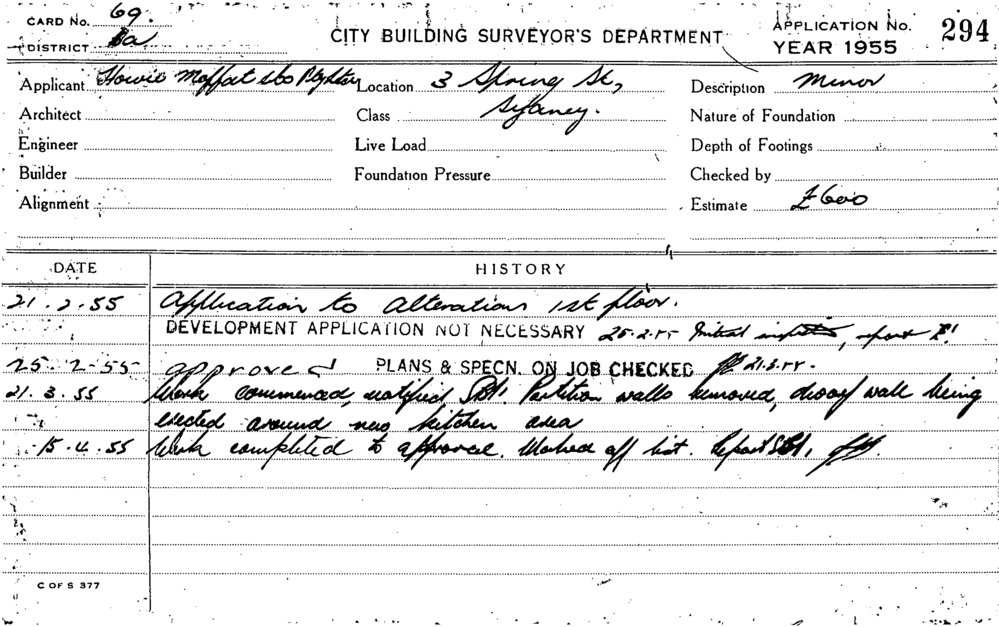 CARD No. 69.
DISTRICT Ba
CITY BUILDING SURVEYOR'S DEPARTMENT
APPLICATION No. 294
YEAR 1955
Applicant Howie Moffat & Co
Location 3 Spring St,
Sydney.
Description Minor
Architect
Class
Nature of Foundation
Engineer
Live Load
Depth of Footings
Builder
Foundation Pressure
Checked by
Alignment
Estimate £600
DATE
HISTORY
21.2.55 Application to alterations 1st floor.
DEVELOPMENT APPLICATION NOT NECESSARY 25.2.55 Initial inspection, report
25-2-55 approved PLANS & SPECN. ON JOB CHECKED 21.3.55.
21.3.55 Work commenced, notified Partition walls removed, dwarf wall being
erected around new kitchen area
15.4.55 Work completed to approval. Marked off list. Report
C OF S 377